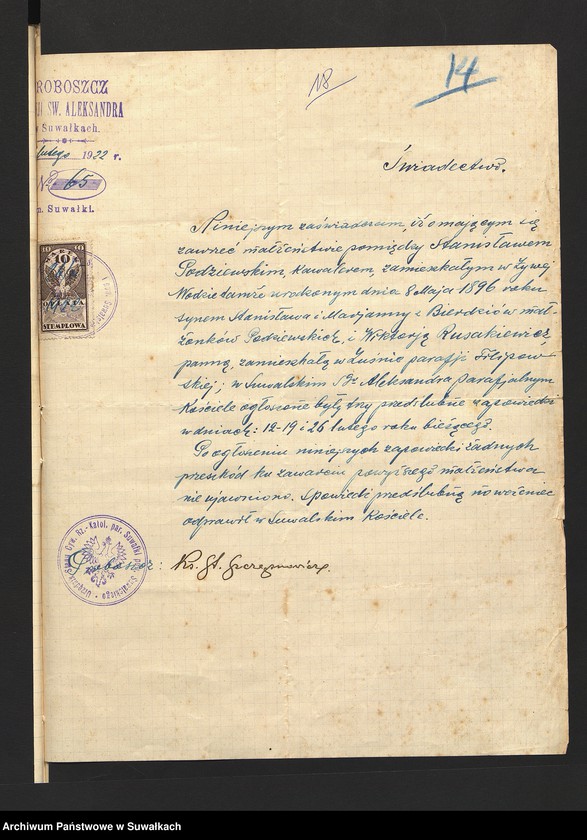 18
14
ROBOSZCZ
ŚW. ALEKSANDRA
Suwałkach.
lutego 1922 r.
No 65
m. Suwałki.
Świadectwo.
Niniejszym zaświadczam, iż o mającym się
zawrzeć małżeństwie pomiędzy Stanisławem
Podziewskim, kawalerem, zamieszkałym w Żywej
Wodzie tamże urodzonym dnia 8 Maja 1896 roku
synem Stanisława i Marjanny z Bierdziów mał-
żonków Podziewskich, i Wiktorją Rusakiewicz
panną, zamieszkałą w Zuśnie parafji Filipow-
skiej; w Suwalskim Św. Aleksandra parafjalnym
Kościele ogłoszone były trzy przedślubne zapowiedzi
w dniach: 12-19 i 26 lutego roku bieżącego.
Po ogłoszeniu niniejszych zapowiedzi żadnych
przeszkód ku zawarciu powyższego małżeństwa
nie ujawniono. Spowiedź przedślubną nowożeniec
odprawił w Suwalskim Kościele.
10
10
STEMPLOWA
Urzędnik Stanu Cyw. Rz.-Katol. par. Suwałki
Suwalskiego
Proboszcz: Ks. St. Szczęsnowicz.
Archiwum Państwowe w Suwałkach